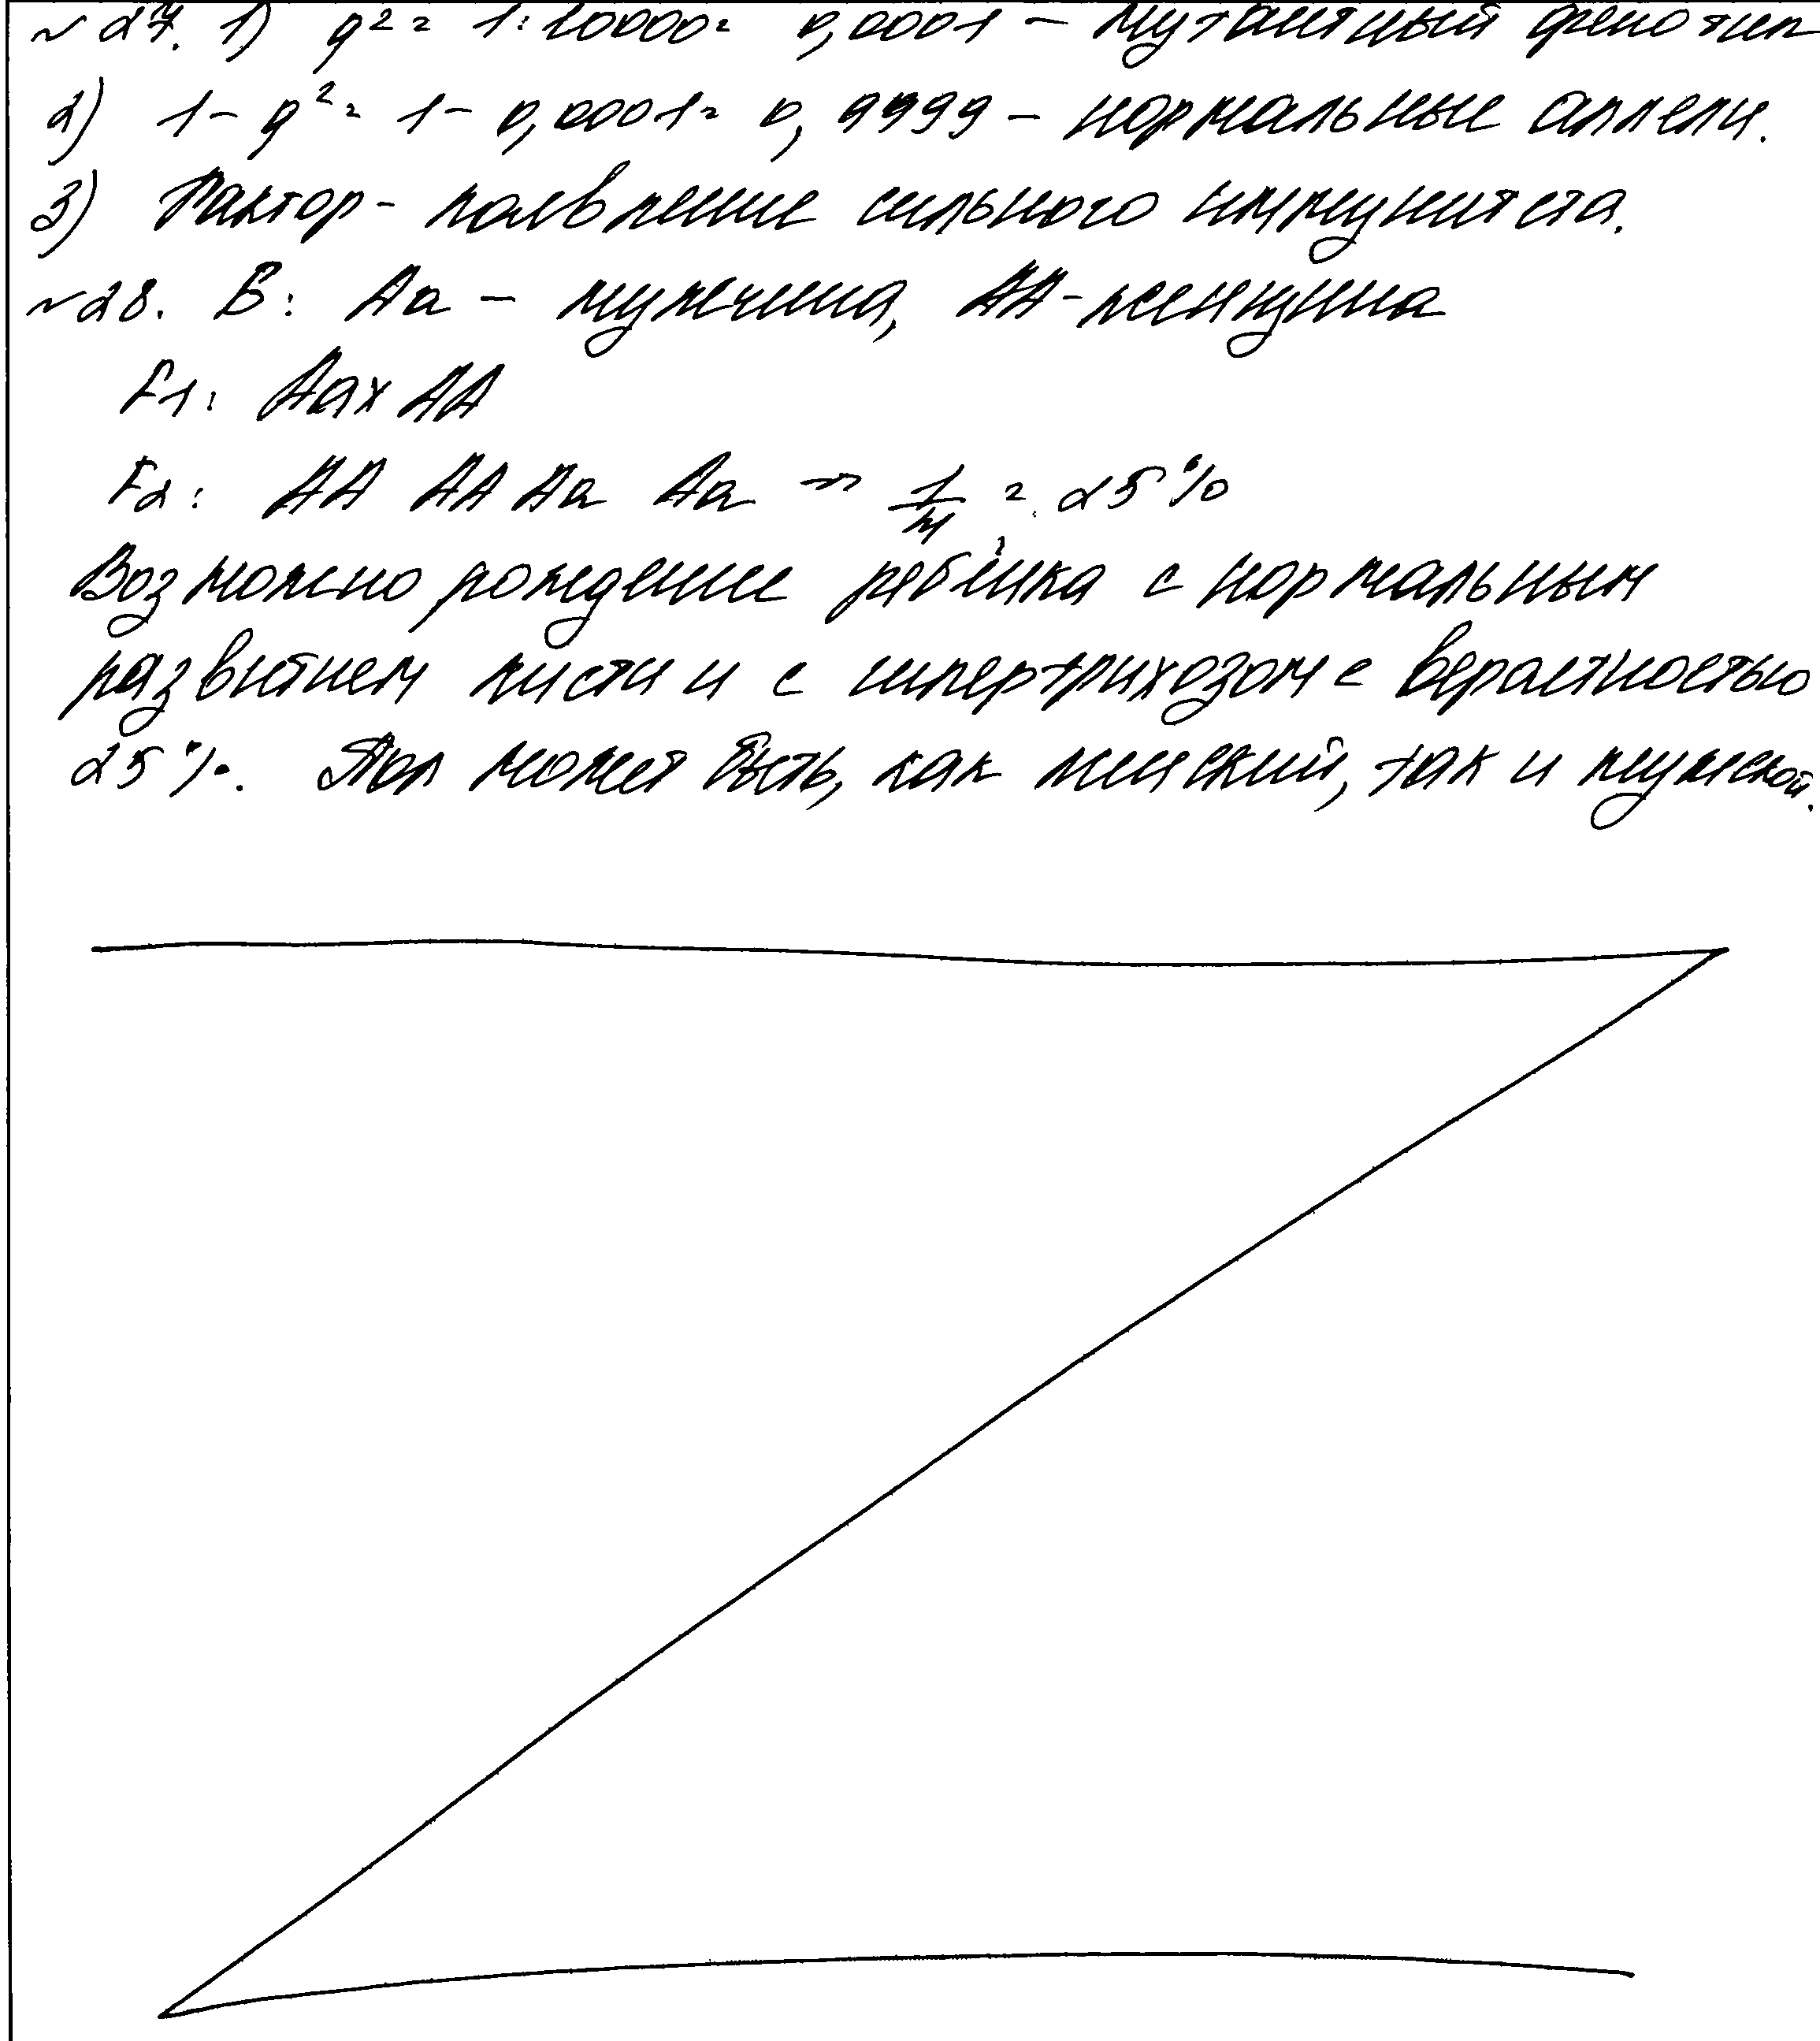 №27. 1) q² = 1:10000 = 0,0001 – мутантный фенотип
2) 1 – q² = 1 – 0,0001 = 0,9999 – нормальные аллели.
3) Фактор – появление сильного иммунитета.
№28. В: Аа – мужчина, АА – женщина
F1: Аа х АА
F2: АА АА Аа Аа ⇒ 1/4 = 25%
Возможно рождение ребёнка с нормальным
развитием кисти и с гипертрихозом с вероятностью
25%. Пол может быть, как женский, так и мужской.